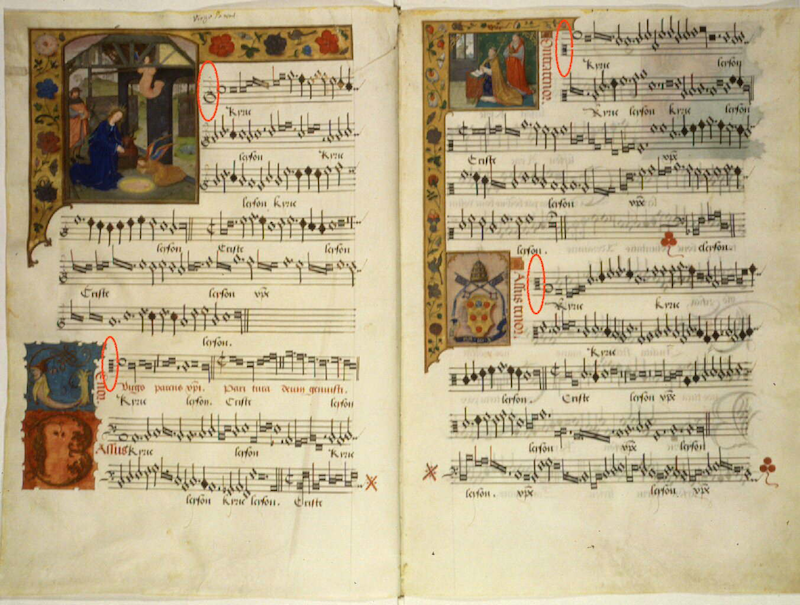 Virgo parens
Kyrie
leyson Kyrie
leyson Kyrie
leyson Criste leyson
Criste leyson xpe
leyson.
Tenor
Virgo parens xpi. Pari tuca deum genuisti.
Kyrie leyson. Criste leyson
Bassus Kyrie leyson Kyrie
leyson Kyrie leyson. Criste
Contratenor
Kyrie leyson
Kyrie leyson Kyrie leyson
Criste xpe
leyson xpe
leyson. eleyson.
Bassus tenor
Kyrie Kyrie
Kyrie
leyson Criste leyson xpe
leyson xpe leyson
leyson. xpe leyson xpe